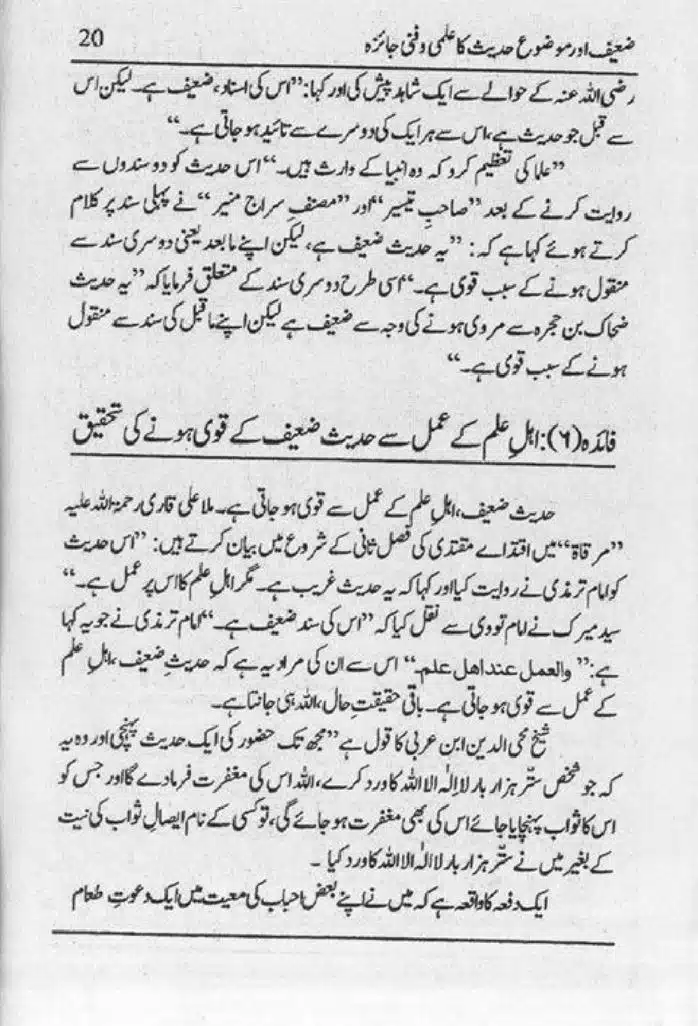 ضعیف اور موضوع حدیث کا علمی و فنی جائزہ 20
رضی اللہ عنہ کے حوالے سے ایک شاہد پیش کی اور کہا: ”اس کی اسناد، ضعیف ہے۔ لیکن اس
سے قبل جو حدیث ہے، اس سے ہر ایک کی دوسرے سے تائید ہو جاتی ہے۔“
”علما کی تعظیم کرو کہ وہ انبیا کے وارث ہیں۔“ اس حدیث کو دو سندوں سے
روایت کرنے کے بعد ”صاحبِ تیسیر“ اور ”مصنفِ سراج منیر“ نے پہلی سند پر کلام
کرتے ہوئے کہا ہے کہ: ”یہ حدیث ضعیف ہے، لیکن اپنے مابعد یعنی دوسری سند سے
منقول ہونے کے سبب قوی ہے۔“ اسی طرح دوسری سند کے متعلق فرمایا کہ ”یہ حدیث
ضحاک بن حجرہ سے مروی ہونے کی وجہ سے ضعیف ہے لیکن اپنے ماقبل کی سند سے منقول
ہونے کے سبب قوی ہے۔“
فائدہ (٦): اہلِ علم کے عمل سے حدیث ضعیف کے قوی ہونے کی تحقیق
حدیث ضعیف، اہلِ علم کے عمل سے قوی ہو جاتی ہے۔ ملا علی قاری رحمۃ اللہ علیہ
”مرقاۃ“ میں اقتداے مقتدی کی فصل ثانی کے شروع میں بیان کرتے ہیں: ”اس حدیث
کو امام ترمذی نے روایت کیا اور کہا کہ یہ حدیث غریب ہے۔ مگر اہلِ علم کا اس پر عمل ہے۔“
سید میرک نے امام نووی سے نقل کیا کہ ”اس کی سند ضعیف ہے۔“ امام ترمذی نے جو یہ کہا
ہے: ”والعمل عند اهل علم۔“ اس سے ان کی مراد یہ ہے کہ حدیثِ ضعیف، اہلِ علم
کے عمل سے قوی ہو جاتی ہے۔ باقی حقیقتِ حال، اللہ ہی جانتا ہے۔
شیخ محی الدین ابن عربی کا قول ہے ”مجھ تک حضور کی ایک حدیث پہنچی اور وہ یہ
کہ جو شخص ستّر ہزار بار لا الٰہ الا اللہ کا ورد کرے، اللہ اس کی مغفرت فرمادے گا اور جس کو
اس کا ثواب پہنچایا جائے اس کی بھی مغفرت ہو جائے گی، تو کسی کے نام ایصالِ ثواب کی نیت
کے بغیر میں نے ستّر ہزار بار لا الٰہ الا اللہ کا ورد کیا ۔
ایک دفعہ کا واقعہ ہے کہ میں نے اپنے بعض احباب کی معیت میں ایک دعوتِ طعام